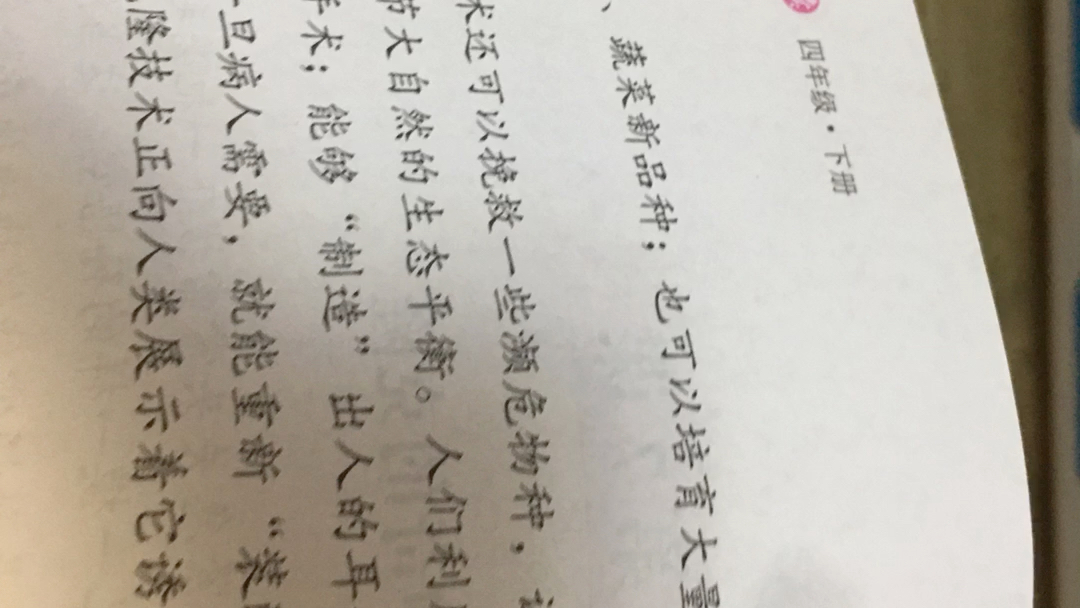 四年级·下册
、蔬菜新品种；也可以培育大量
术还可以挽救一些濒危物种，
节大自然的生态平衡。人们利
手术；能够“制造”出人的耳
一旦病人需要，就能重新“装
隆技术正向人类展示着它诱